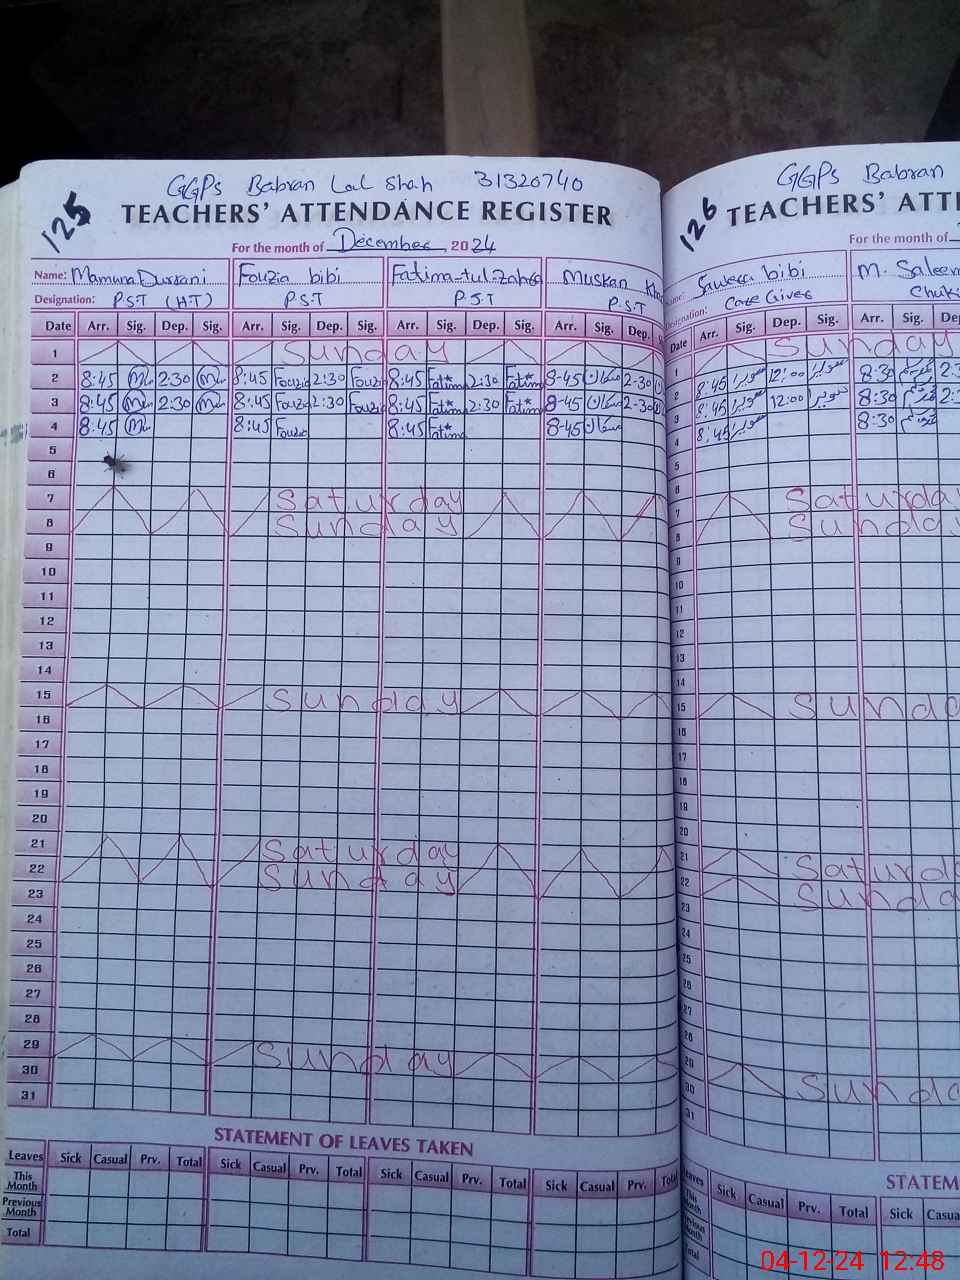 GGPS Babran Lal Shah 31320740
125
TEACHERS' ATTENDANCE REGISTER
For the month of December 2024
Name: Mamuna Durrani Fouzia bibi Fatima-tul-Zahra Muskan
Designation: P.S.T (H.T) P.S.T P.S.T P.S.T
Date Arr. Sig. Dep. Sig. Arr. Sig. Dep. Sig. Arr. Sig. Dep. Sig. Arr. Sig. Dep.
1 Sunday
2 8:45 2:30 8:45 Fouzia 2:30 Fouzia 8:45 Fatima 2:30 Fatima 8-45 مسکان 2-30
3 8:45 2:30 8:45 Fouzia 2:30 Fouzia 8:45 Fatima 2:30 Fatima 8-45 مسکان 2-30
4 8:45 8:45 Fouzia 8:45 Fatima 8-45 مسکان
5
6
7 Saturday
8 Sunday
9
10
11
12
13
14
15 Sunday
16
17
18
19
20
21 Saturday
22 Sunday
23
24
25
26
27
28
29 Sunday
30
31
STATEMENT OF LEAVES TAKEN
Leaves Sick Casual Prv. Total Sick Casual Prv. Total Sick Casual Prv. Total Sick Casual Prv.
This Month
Previous Month
Total
GGPS Babran
126
TEACHERS' ATTE
For the month of
Name: Saweera bibi M. Saleem
Designation: Care Giver
Date Arr. Sig. Dep. Sig. Arr. Sig.
1 Sunday
2 8:45 سویرا 12:00 سویرا 8:30
3 8:45 سویرا 12:00 سویرا 8:30
4 8:45 سویرا 8:30
5
6
7 Saturday
8 Sunday
9
10
11
12
13
14
15 Sund
16
17
18
19
20
21 Saturd
22 Sunda
23
24
25
26
27
28
29
30 Sunda
31
STATEM
Sick Casual Prv. Total Sick Casua
Total
04-12-24 12:48